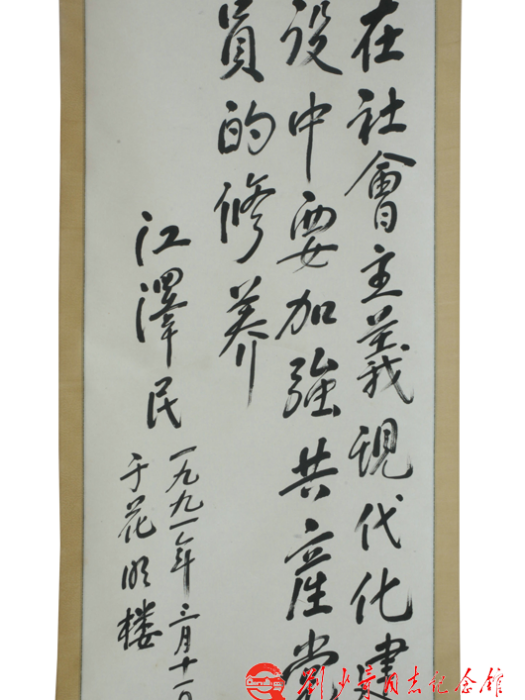 在社會主義現代化建
设中要加強共產党
員的修养
江澤民
一九九一年三月十一日
于花明楼
劉少奇同志纪念館